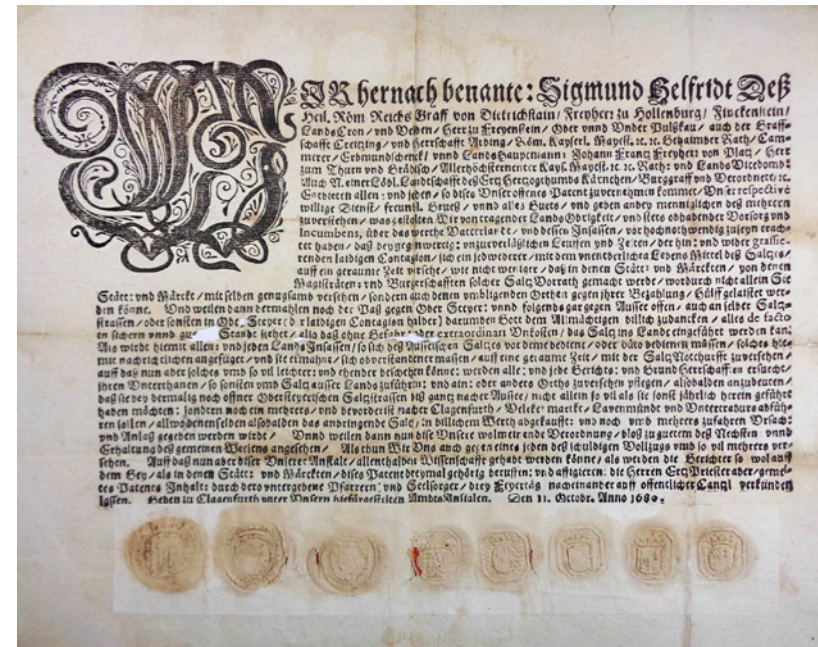 WIR hernach benante: Sigmund Helfridt Deß
Heil. Röm Reichs Graff von Dietrichstain / Freyherr zu Hollenburg / Finckenstein /
LandsCron / vnd Herr zu Freyenstein / Ober vnnd Vnder Pulgkau / auch der Graff-
schafft Creitzing / vnd Herrschafft Arbing / Röm. Kayserl. Mayest. ꝛc. ꝛc. Gehaimber Rath / Cam-
merer / Erbmundschenck / vnnd Landshauptmann: Johann Frantz Freyherr von Platz / Herr
zum Thurn und Grädisch / Allerhöchsternenter Kays. Mayest. ꝛc. ꝛc. Rath: vnd Lands Vicedomb:
Auch N. einer Löbl. Landtschafft deß Ertzhertzogthumbs Kärnthen / Burggraff vnd Verordnete / ꝛc.
Entbieten allen: vnd jeden / so dises Vnser offenes Patent zuvernehmen kommet / Vnser respectivè
willige Dienst / freundl. Grueß / vnnd alles Guets / vnd geben anbey menniglichen deß mehrern
zuversehen / was gestalten Wir von tragender Lands Obrigkeit / vnd stets obhabender Vorsorg vnd
Incumbens, über das werthe Vatterland / vnd dessen Insassen / vor hochnothwendig zuseyn erach-
tet haben / daß bey gegenwertig: vnzuverläßlichen Leuffen vnd Zeiten / der hin: vnd wider grassie-
renden laidigen Contagion / sich ein jedwederer / mit dem vnentberlichen Lebens Mittel deß Saltzes /
auff ein geraume Zeit versehe / wie nicht weniger / daß in denen Stätt: vnd Märckten / von denen
Magisträten: vnd Burgerschafften solcher Saltz Vorrath gemacht werde / wordurch nicht allein Sie
Stätt: vnd Märckt / mit selben genugsamb versehen / sondern auch denen vmbligenden Orthen gegen ihrer Bezahlung / Hülff gelaistet wer-
den könne. Vnd weilen dann dermahlen noch der Paß gegen Ober Steyer: vnnd folgends gar gegen Aussee offen / auch an selber Saltz-
strassen / oder sonsten in Steyer laidigen Contagion halber) darumben Gott dem Allmächtigen billich zudancken / alles de facto
in sichern vnnd Stande stehet / also daß ohne Gefahr / extraordinari Vnkosten / das Saltz ins Lande eingeführt werden kan:
Als wirdt hiemit allen: vnd jeden Lands Insassen / so sich deß Ausseeischen Saltzes vor deme bedient / oder bedienen müssen / solches hie-
mit nachrichtlichen angefügt / vnd sie ermahnt / sich obverstandener massen / auff eine geraume Zeit / mit der Saltz Notthurfft zuversehen /
auff daß nun aber solches vmb so vil leichter: vnd ehender beschehen könne: werden alle: vnd jede Gerichts: vnd Grund Herrschafften ersucht /
ihren Vnterthanen / so sonsten vmb Saltz ausser Lands zuführn: vnd ain: oder anders Orths zuversehen pflegen / alsobalden anzudeuten /
daß sie bey dermalig noch offner Obersteyerischen Saltzstrassen biß gantz nacher Aussee / nicht allein so vil als sie sonst jährlich herein geführt
haben möchten: sondern noch ein mehrers / vnd bevorderist nacher Clagenfurth / Völckermarckt / Lavenmünde vnd Vntertraburg abfüh-
ren sollen / allwo denenselben alsobalden das anbringende Saltz / in billichem Werth abgekaufft: vnd noch vmb mehrers zufahren Vrsach:
vnd Anlaß gegeben werden wirdt / Vnnd weilen dann nun dise Vnsere wolmeinende Verordnung / bloß zu guetem deß Nechsten vnnd
Erhaltung deß gemeinen Weesens angesehen / Als thun Wir Vns auch gegen eines jeden deß schuldigen Vollzugs vmb so vil mehrers ver-
sehen. Auff daß nun aber diser Vnserer Anstalt / allenthalben Wissenschafft gehabt werden könne / als werden die Gerichter so wol auff
dem Gey / als in denen Stätt: vnd Märckten / dises Patent dreymal gehörig beruffen: vnd affigieren: die Herren Ertz Priester aber / gemel-
tes Patents Inhalt durch dero vntergebene Pfarrern: vnd Seelsorger / drey Feyertäg nacheinander auff offentlicher Cantzl verkünden
lassen. Geben zu Clagenfurth vnter Vnsern hiefürgestelten Ambts Insiglen. Den 11. Octobr. Anno 1680.